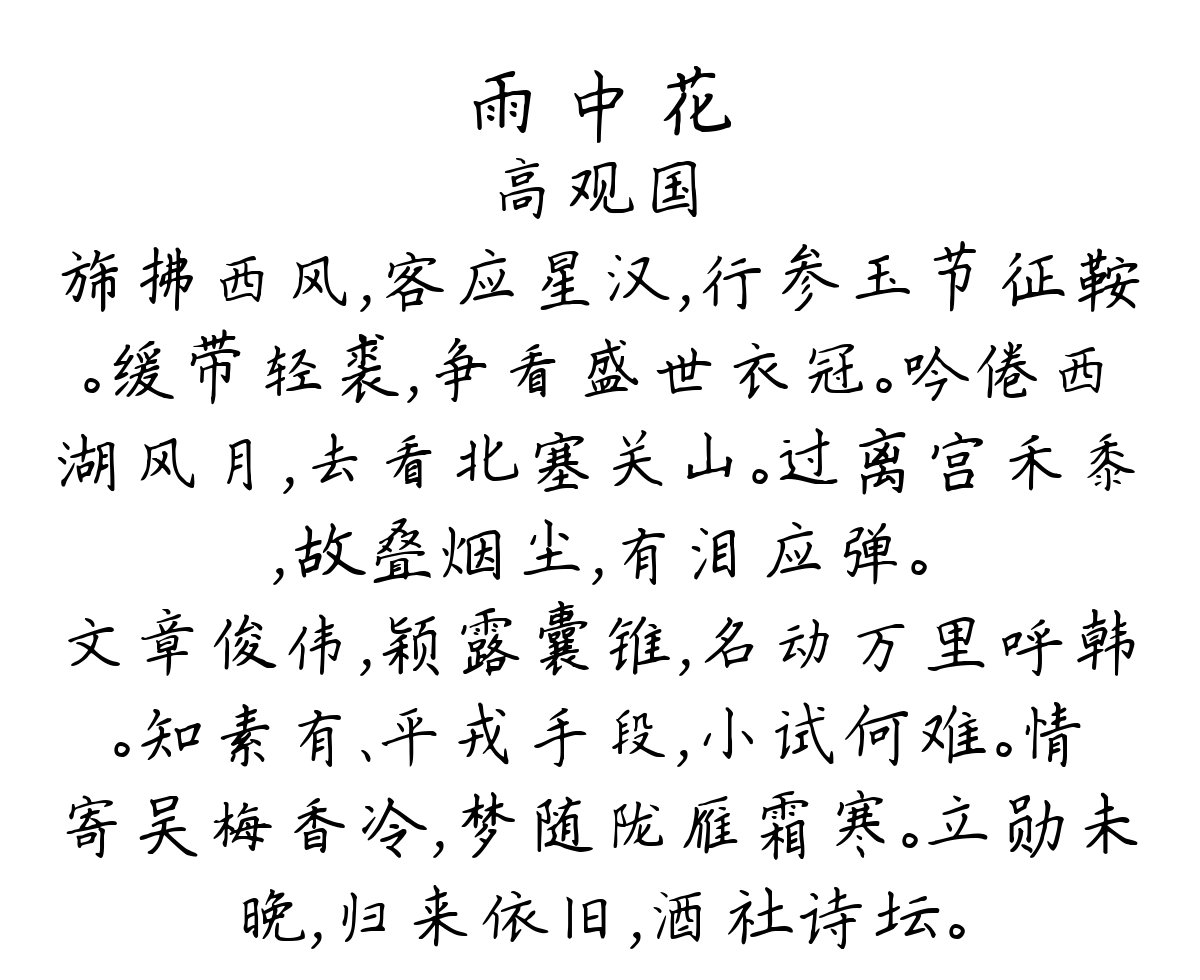 雨中花
高观国
旆拂西风,客应星汉,行参玉节征鞍
。缓带轻裘,争看盛世衣冠。吟倦西
湖风月,去看北塞关山。过离宫禾黍
,故叠烟尘,有泪应弹。
文章俊伟,颖露囊锥,名动万里呼韩
。知素有、平戎手段,小试何难。情
寄吴梅香冷,梦随陇雁霜寒。立勋未
晚,归来依旧,酒社诗坛。